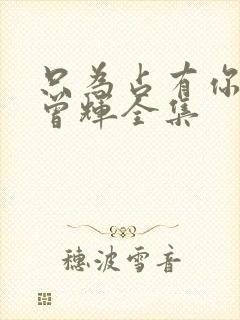 只为占有你
曾輝全集
穗波雪音